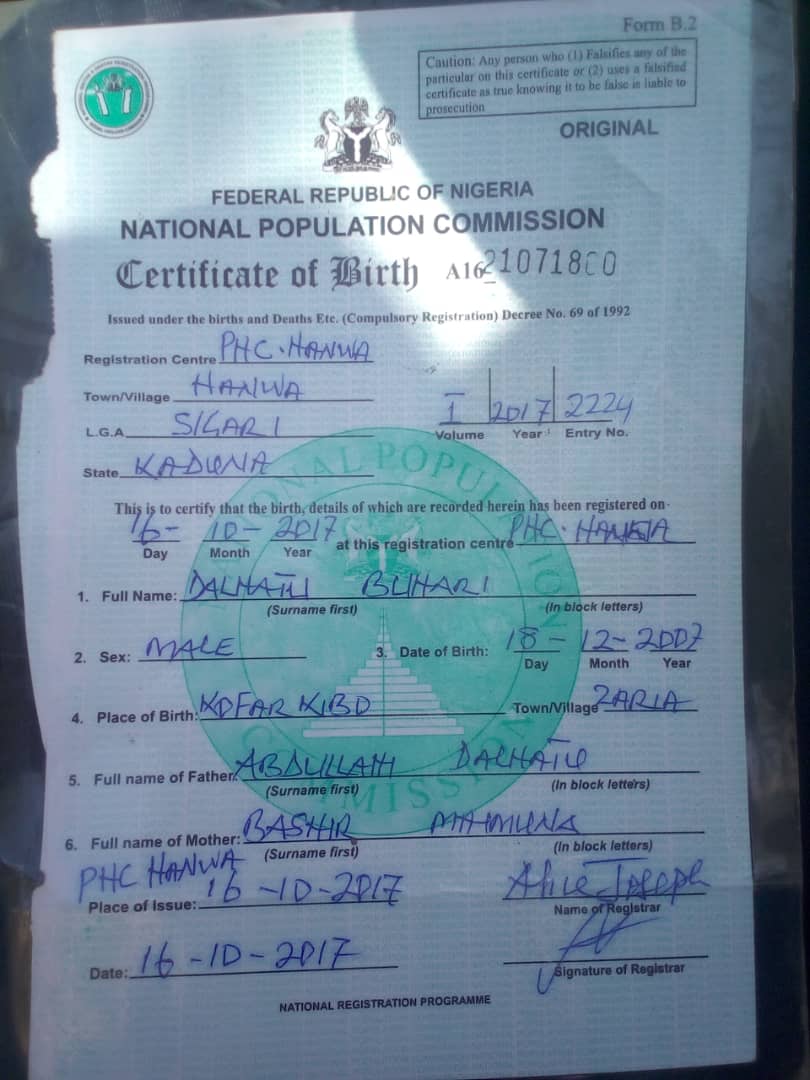 Form B.2
Caution: Any person who (1) Falsifies any of the
particular on this certificate or (2) uses a falsified
certificate as true knowing it to be false is liable to
prosecution
ORIGINAL
FEDERAL REPUBLIC OF NIGERIA
NATIONAL POPULATION COMMISSION
Certificate of Birth A16 21071800
Issued under the births and Deaths Etc. (Compulsory Registration) Decree No. 69 of 1992
Registration Centre PHC. HANWA
Town/Village HANWA
L.G.A. SIGARI
I 2017 2224
Volume Year Entry No.
State KADUNA
NATIONAL POPULATION COMMISSION
This is to certify that the birth, details of which are recorded herein has been registered on
16- 10- 2017 at this registration centre PHC. HANWA
Day Month Year
1. Full Name: DALHATU BUHARI
(Surname first) (In block letters)
2. Sex: MALE 3. Date of Birth: 18 - 12 - 2007
Day Month Year
4. Place of Birth: KOFAR KIBO Town/Village ZARIA
5. Full name of Father: ABDULLAHI DALHATU
(Surname first) (In block letters)
6. Full name of Mother: BASHIR MAIMUNA
(Surname first) (In block letters)
PHC HANWA
Place of Issue: 16-10-2017 Alice Joseph
Name of Registrar
Date: 16-10-2017
Signature of Registrar
NATIONAL REGISTRATION PROGRAMME